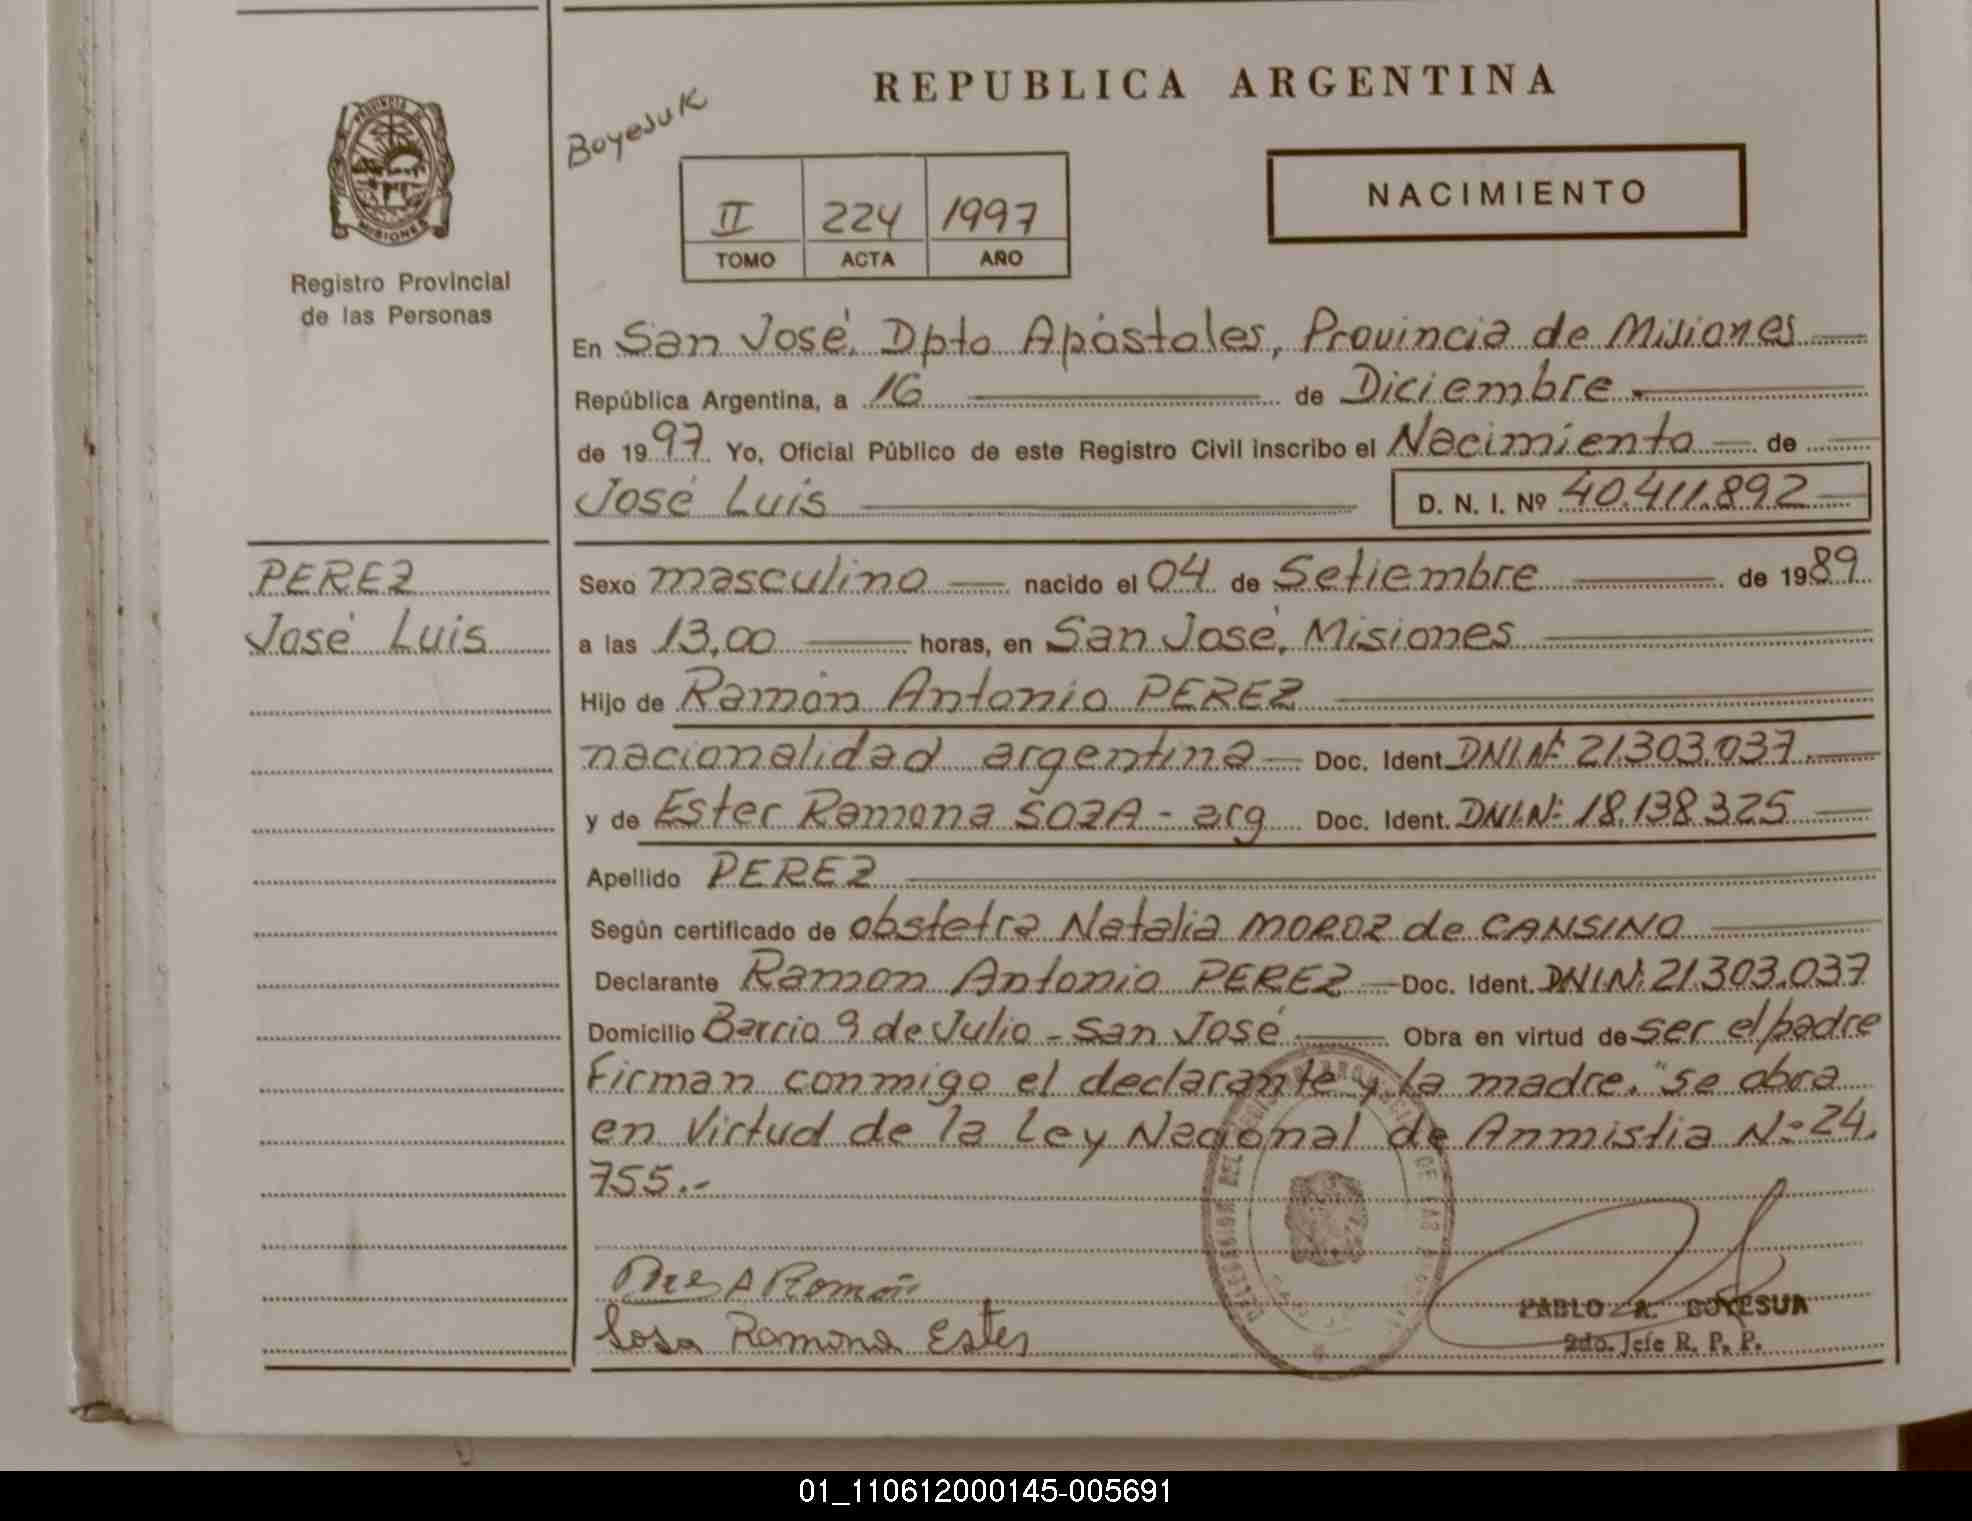 REPUBLICA ARGENTINA
Boyesuk
NACIMIENTO
II 224 1997
TOMO ACTA AÑO
PROVINCIA DE MISIONES
Registro Provincial
de las Personas
En San José, Dpto Apóstoles, Provincia de Misiones
República Argentina, a 16 de Diciembre
de 1997 Yo, Oficial Público de este Registro Civil inscribo el Nacimiento de
José Luis D. N. I. Nº 40.411.892
PEREZ
José Luis
Sexo masculino nacido el 04 de Setiembre de 1989
a las 13,00 horas, en San José, Misiones
Hijo de Ramón Antonio PEREZ
nacionalidad argentina Doc. Ident. DNI.Nº 21.303.037.
y de Ester Ramona SOZA - arg Doc. Ident. DNI.Nº 18.138.325
Apellido PEREZ
Según certificado de obstetra Natalia MOROZ de CANSINO
Declarante Ramon Antonio PEREZ Doc. Ident. DNI.N: 21.303.037
Domicilio Barrio 9 de Julio - San José Obra en virtud de ser el padre
Firman conmigo el declarante y la madre. "se obra
en Virtud de la Ley Nacional de Anmistia Nº 24.
755.-
A Román
Sosa Ramona Ester
PABLO A. BOYESUK
2do. Jefe R. P. P.
01_110612000145-005691